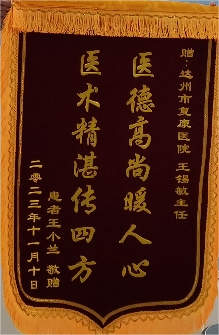 赠：达州市复康医院 王锡敏主任
医德高尚暖人心
医术精湛传四方
患者王小兰 敬赠
二零二三年十一月十日